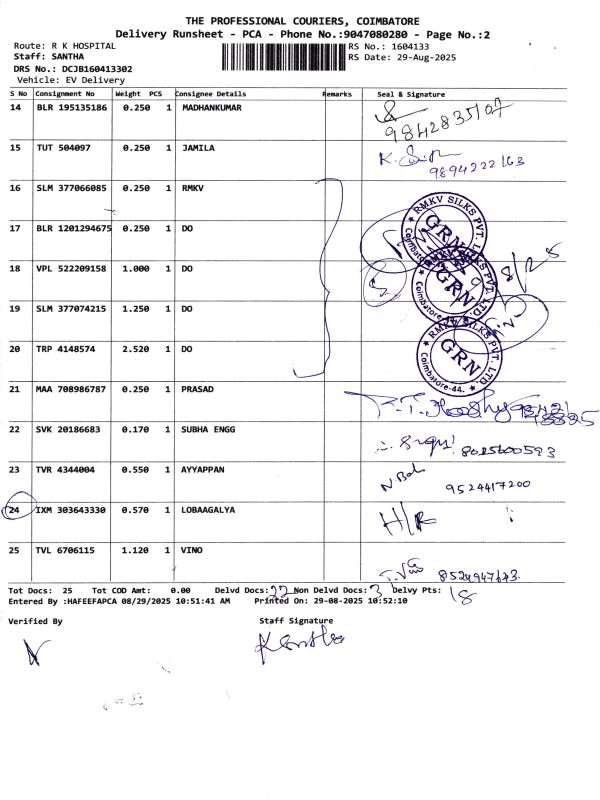 THE PROFESSIONAL COURIERS, COIMBATORE
Delivery Runsheet - PCA - Phone No.:9047080280 - Page No.:2
Route: R K HOSPITAL
Staff: SANTHA
DRS No.: DCJB160413302
Vehicle: EV Delivery
RS No.: 1604133
RS Date: 29-Aug-2025
S No Consignment No Weight PCS Consignee Details Remarks Seal & Signature
14 BLR 195135186 0.250 1 MADHANKUMAR
15 TUT 504097 0.250 1 JAMILA
16 SLM 377066085 0.250 1 RMKV
17 BLR 1201294675 0.250 1 DO
18 VPL 522209158 1.000 1 DO
19 SLM 377074215 1.250 1 DO
20 TRP 4148574 2.520 1 DO
RMKV SILKS PVT. LTD.
GRN
Coimbatore-44.
21 MAA 708986787 0.250 1 PRASAD
22 SVK 20186683 0.170 1 SUBHA ENGG 8015600593
23 TVR 4344004 0.550 1 AYYAPPAN 9524417200
24 IXM 303643330 0.570 1 LOBAAGALYA H/R
25 TVL 6706115 1.120 1 VINO
Tot Docs: 25 Tot COD Amt: 0.00 Delvd Docs: 22 Non Delvd Docs: 3 Delvy Pts: 18
Entered By :HAFEEFAPCA 08/29/2025 10:51:41 AM Printed On: 29-08-2025 10:52:10
Verified By Staff Signature